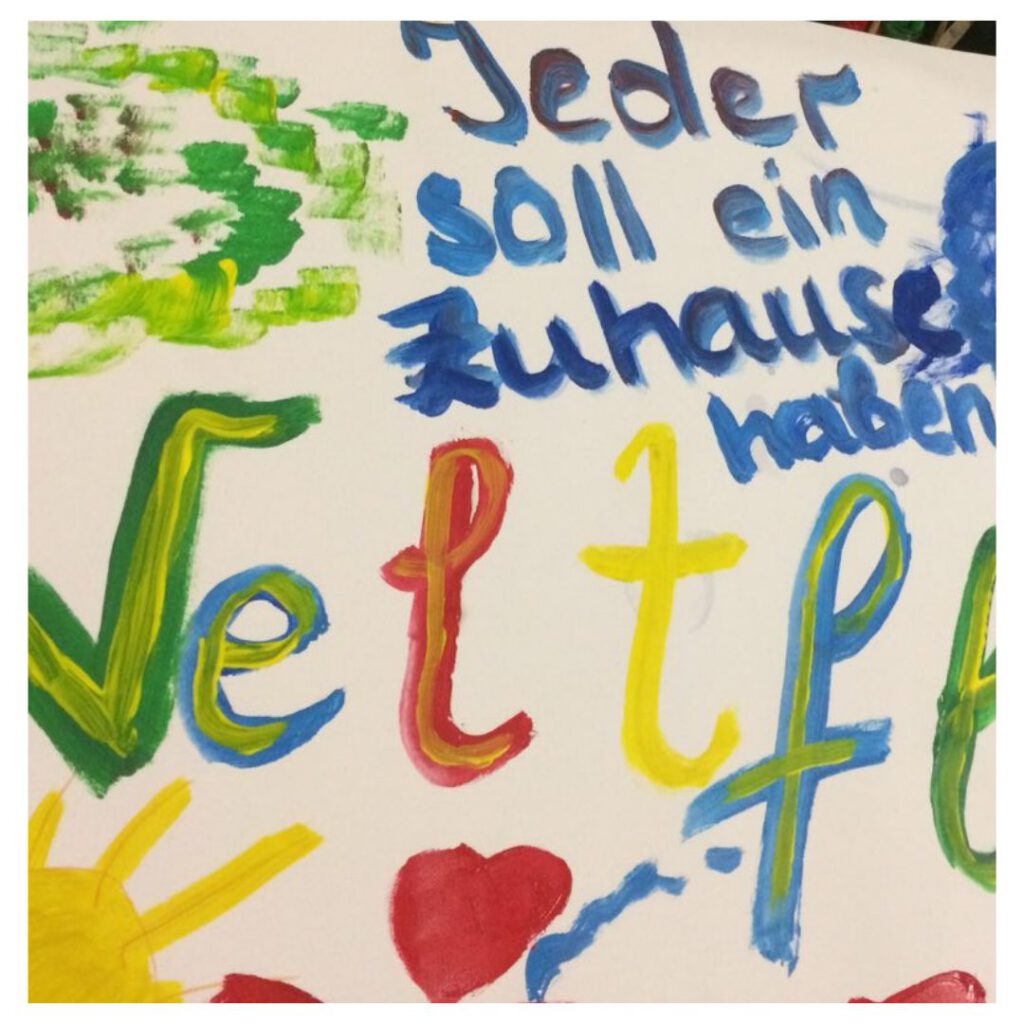 Jeder
soll ein
Zuhause
haben
Weltf